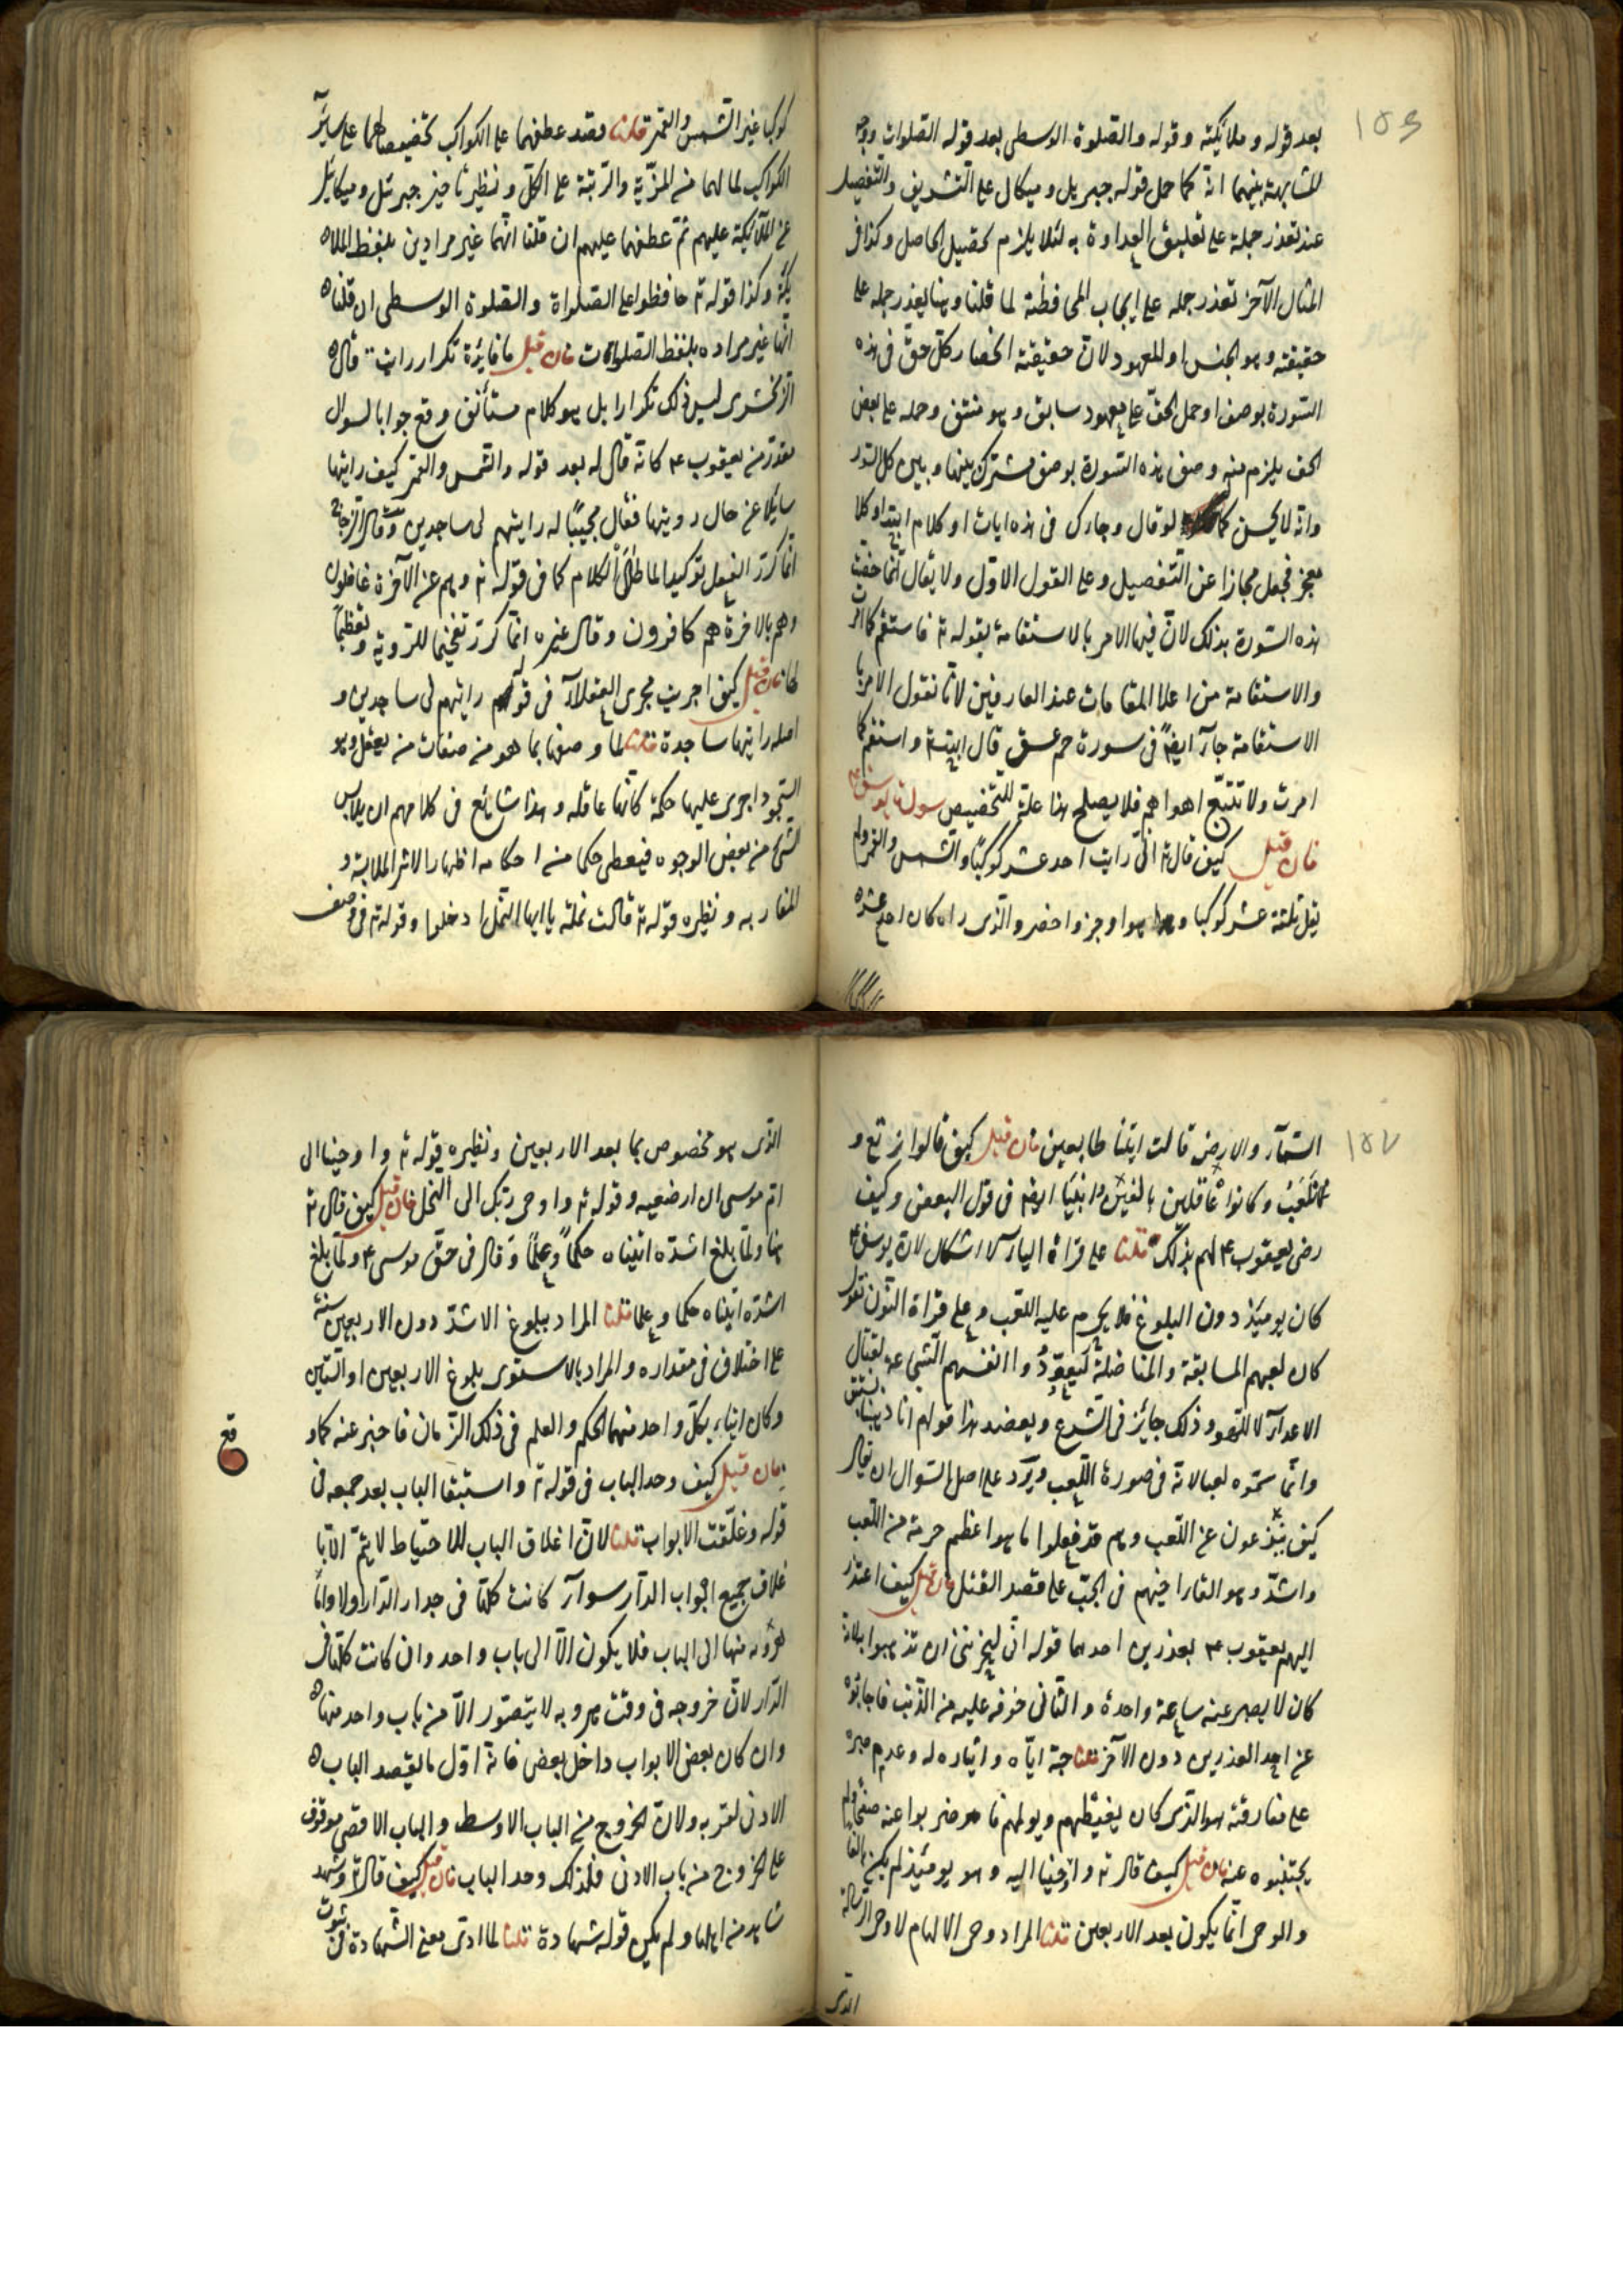 ١٥٦
بعد قوله وملائكته وقوله والصلوة الوسطى بعد قوله الصلوات ووجه
المشابهة بينهما انه كما حمل قوله جبريل وميكال على التشريف والتفضيل
عند تعذر حمله على تعليق العداوة به لئلا يلزم تحصيل الحاصل وكذا فى
المثال الآخر تعذر حمله على ايجاب المحافظة لما قلنا وهنا يعذر حمله على
حقيقته وهو الجنس او المعهود لان حقيقته انحصار كل حق فى هذه
السورة بوصف او حمل الحق على معهود سابق وهو منتف وحمله على بعض
الحق يلزم منه وصف هذه السورة بوصف مشترك بينها وبين كل السور
وانه لا يحسن كما لو قال وجاءك فى هذه ايات او كلام ابتداء وكلا
معجز فجعل مجازا عن التفضيل وعلى القول الاول ولا يقال انما خصت
هذه السورة بذلك لان فيها الامر بالاستقامة بقوله تع فاستقم كما امرت
والاستقامة من اعلا المقامات عند العارفين لانا نقول الامر با
الاستقامة جآء ايضا فى سورة حم عسق قال الله تع واستقم كما
امرت ولا تتبع اهواءهم فلا يصلح هذا علة للتخصيص سورة يوسف ع
فان قيل كيف قال تع انى رايت احد عشر كوكبا والشمس والقمر ولم
يقل ثلثة عشر كوكبا وهو اوجز واخصر والذى راه كان احد عشر
كوكبا غير الشمس والقمر قلنا قصد عطفهما على الكواكب تخصيصا لهما على سائر
الكواكب لما لهما من المزية والرتبة على الكل ونظيره تاخير جبرئل وميكائل
عن الملآئكة عليهم ثم عطفهما عليهم ان قلنا انهما غير مرادين بلفظ الملا
ئكة وكذا قوله تع حافظوا على الصلواة والصلوة الوسطى ان قلنا
انها غير مراده بلفظ الصلوات فان قيل ما فايدة تكرار رايت قال
الزمخشرى ليس ذلك تكرارا بل هو كلام مستأنف وقع جوابا لسوال
مقدر من يعقوب ع كانه قال له بعد قوله والشمس والقمر كيف رايتها
سايلا عن حال رويتها فقال مجيبا له رايتهم لى ساجدين وقال الزجاج
انما كرر الفعل توكيدا لما طال الكلام كما فى قوله تع وهم عن الآخرة غافلون
وهم بالاخرة هم كافرون وقال غيره انما كرر تفخيما للروية وتعظيما
لها فان قيل كيف اجريت مجرى العقلاء فى قوله رايتهم لى ساجدين و
اصله رايتها ساجدة قلنا لما وصفها بما هو من صفات من يعقل وهو
السجود اجرى عليها حكمه كانها عاقله وهذا شايع فى كلامهم ان يلابس
الشئ من بعض الوجوه فيعطى حكما من احكامه اظهارا لاثر الملابسة و
المقاربه ونظيره قوله تع قالت نملة يا ايها النمل ادخلوا وقوله تع فى وصف
١٥٧
السماء والارض قالت اتينا طايعين فان قيل كيف قالوا نرتع و
نلعب وكانوا عاقلين بالغين وانبياء ايضا فى قول البعض وكيف
رضى يعقوب ع لهم بذلك قلنا على قراة الياء لا اشكال لان يوسف ع
كان يوميذ دون البلوغ فلا يحرم عليه اللعب وعلى قراة النون نقول
كان لعبهم المسابقة والمناضلة ليعودوا انفسهم الشجاعة لقتال
الاعداء لا للهو وذلك جايز فى الشرع ويعضد هذا قولهم انا ذهبنا نستبق
وانما سموه لعبا لانه فى صورة اللعب ويرد على اصل السوال ان يقال
كيف يتورعون عن اللعب وهم قد فعلوا ما هو اعظم حرمة من اللعب
واشد وهو القاء اخيهم فى الجب على قصد القتل فان قيل كيف اعتذر
اليهم يعقوب ع بعذرين احدهما قوله انى ليحزننى ان تذهبوا به لانه
كان لا يصبر عنه ساعة واحدة والثانى خوفه عليه من الذئب فاجابوه
عن احد العذرين دون الآخر قلنا حبه اياه وايثاره له وعدم صبره
على مفارقته هو الذى كان يغيظهم ويولمهم فاضربوا عنه صفحا ولم
يجتنبوه عنه فان قيل كيف قال تع واوحينا اليه وهو يوميذ لم يكن بالغا
والوحى انما يكون بعد الاربعين قلنا المراد وحى الالهام لا وحى الرسالة
الذى
الذى هو مخصوص بما بعد الاربعين ونظيره قوله تع واوحينا الى
ام موسى ان ارضعيه وقوله تع واوحى ربك الى النحل فان قيل كيف قال تع
هنا ولما بلغ اشده اتيناه حكما وعلما وقال فى حق موسى ع ولما بلغ
اشده اتيناه حكما وعلما قلنا المراد ببلوغ الاشد دون الاربعين سنة
على اختلاف فى مقداره والمراد بالاستوى بلوغ الاربعين او الستين
وكان ايتاء كل واحد منهما الحكم والعلم فى ذلك الزمان فاخبر عنه كما و
قع
فان قيل كيف وحد الباب فى قوله تع واستبقا الباب بعد جمعه فى
قوله وغلقت الابواب قلنا لان اغلاق الباب للاحتياط لا يتم الا با
غلاق جميع ابواب الدار سوآء كانت كلها فى جدار الدار اولا واما
هروبه منها الى الباب فلا يكون الا الى باب واحد وان كانت كلها فى
الدار لان خروجه فى وقت هروبه لا يتصور الا من باب واحد منها
وان كان بعض الابواب داخل بعض فانه اول ما يقصد الباب
الادنى لقربه ولان الخروج من الباب الاوسط والباب الاقصى موقوف
على الخروج من باب الادنى فلذلك وحد الباب فان قيل كيف قال تع وشهد
شاهد من اهلها ولم يكن قوله شهادة قلنا لما ادى معنى الشهادة فى ثبوت